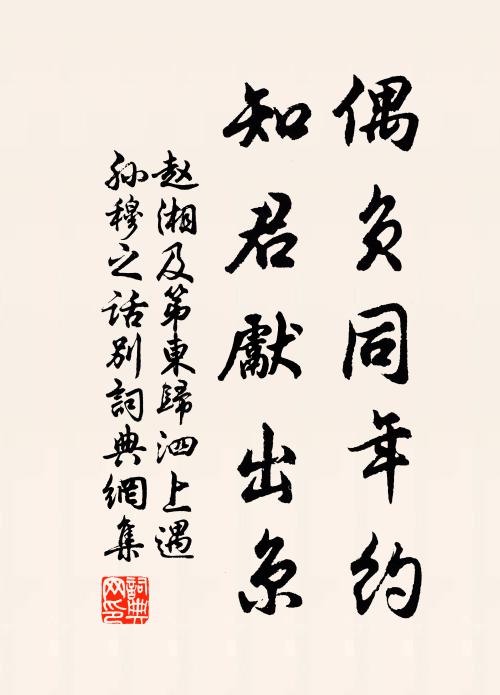 偶负同年约
知君獻出京
赵湘及第東歸泗上遇
孙穆之话别詞典網集
詞典網印